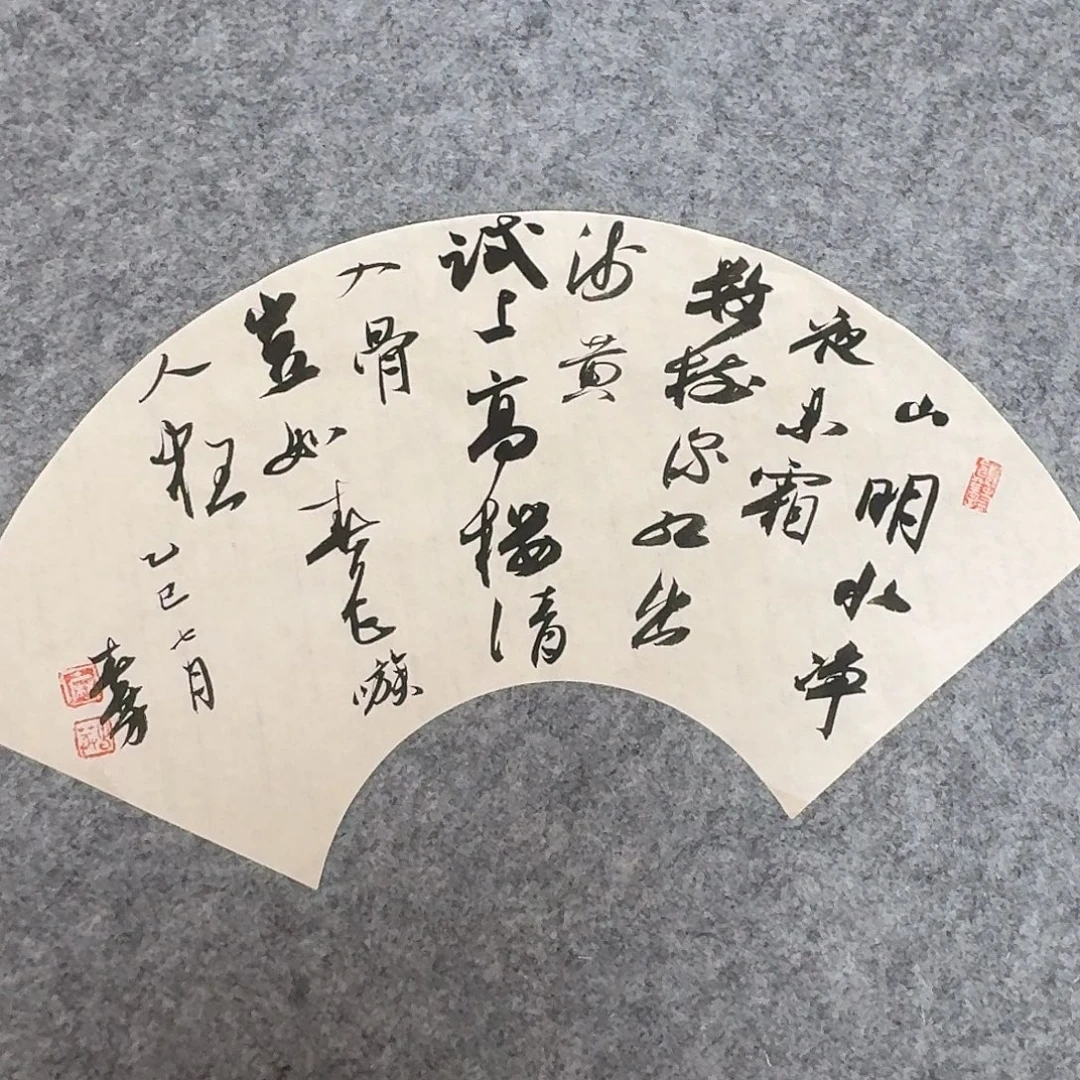 山明水净
夜来霜
數樹深紅出
浅黄
試上高樓清
入骨
豈如春色嗾
人狂
乙巳七月